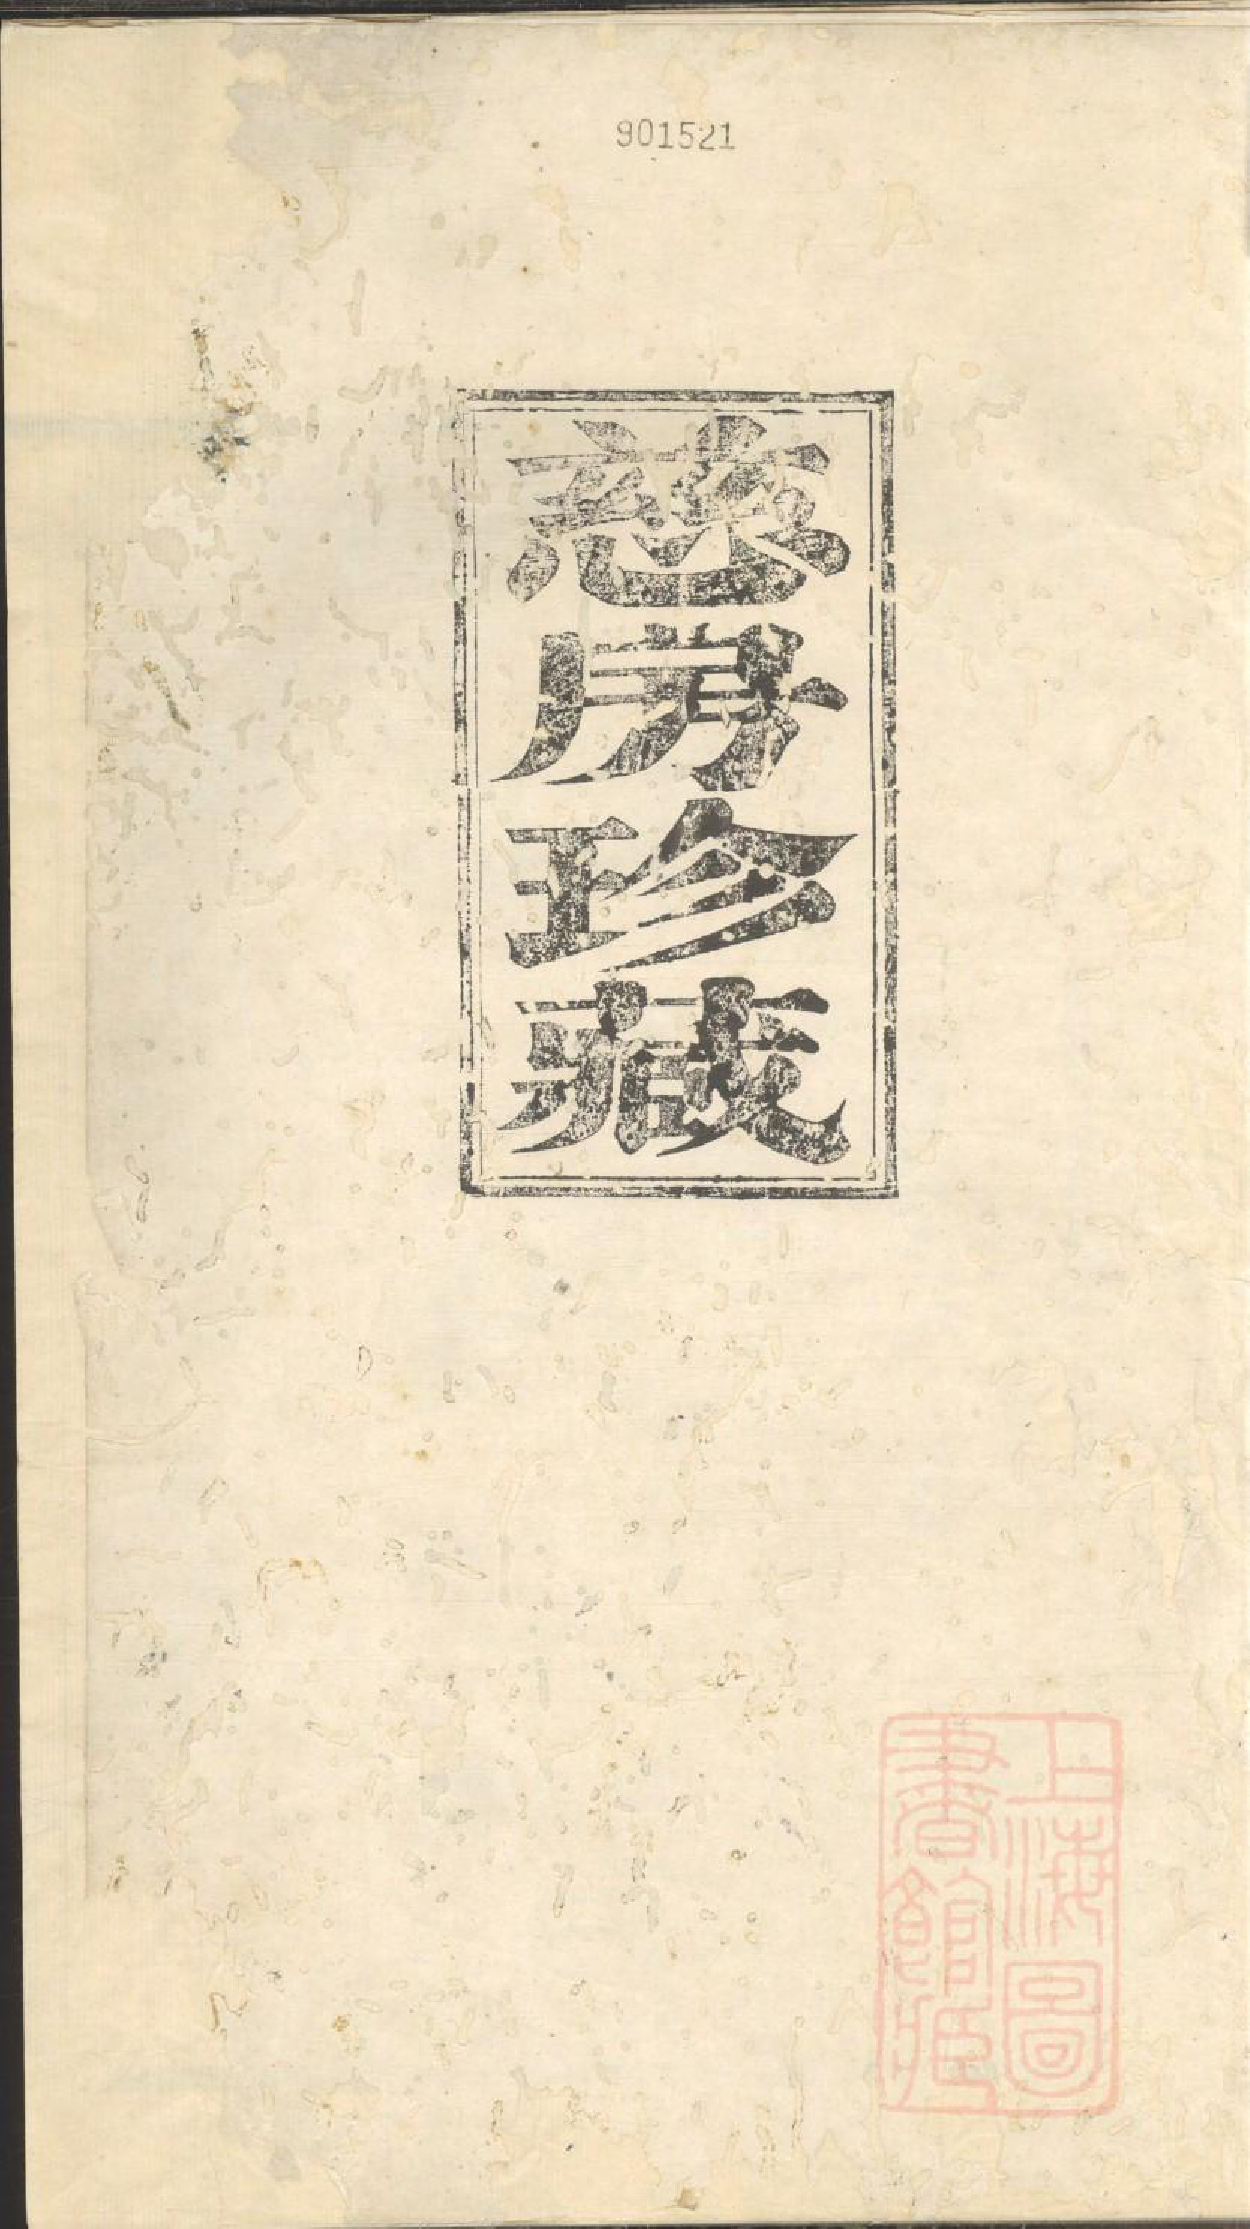 901521
慈房珍藏
上海圖
書館藏